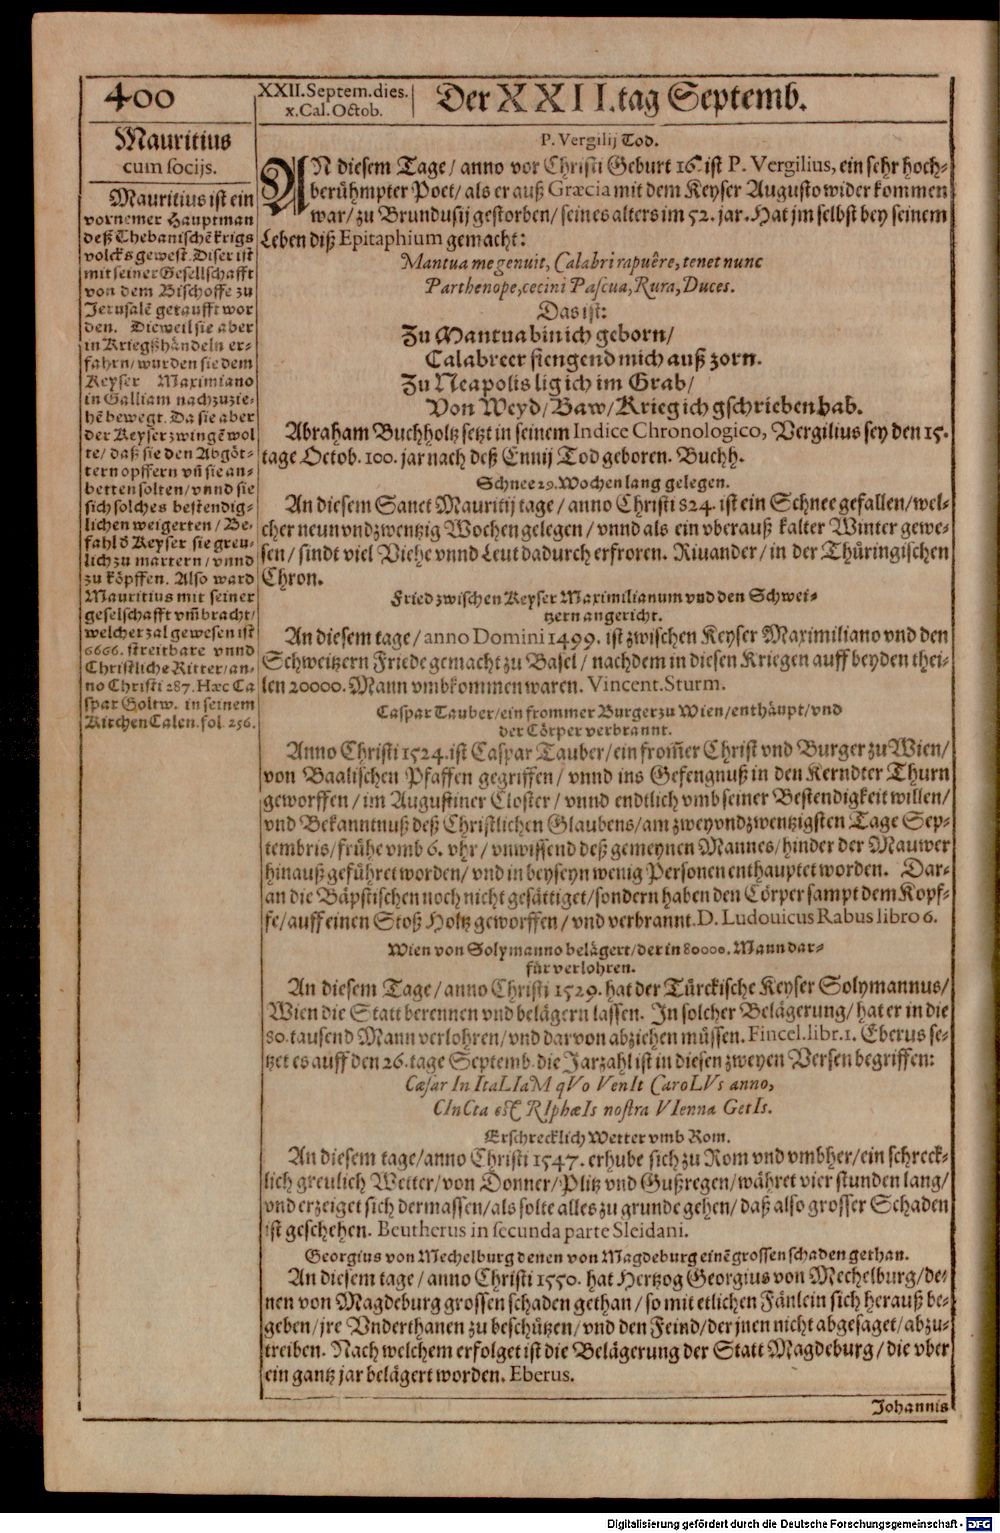 400
XXII.Septem.dies.
x.Cal.Octob.
Der XXII.tag Septemb.
Mauritius
cum socijs.
Mauritius ist ein
vornemer Hauptman
deß Thebanischẽ kriegs
volcks gewest. Diser ist
mit seiner Gesellschafft
von dem Bischoffe zu
Jerusalẽ getaufft wor
den. Dieweil sie aber
in Kriegßhändeln er-
fahrn/wurden sie dem
Keyser Maximiano
in Galliam nachzuzie-
hẽ bewegt. Da sie aber
der Keyser zwingẽ wol
te/ daß sie den Abgöt-
tern opffern vñ sie an-
betten solten/vnnd sie
sich solches bestendig-
lichen weigerten/ Be-
fahl d Keyser sie greu-
lich zu martern/ vnnd
zu köpffen. Also ward
Mauritius mit seiner
geselschafft vm̃bracht/
welcher zal gewesen ist
6666. streitbare vnnd
Christliche Ritter/an-
no Christi 287. Hæc Ca
spar Goltw. in seinem
Kirchen Calen. fol. 256.
P. Vergilij Tod.
AN diesem Tage/ anno vor Christi Geburt 16. ist P. Vergilius, ein sehr hoch-
berühmpter Poet/ als er auß Græcia mit dem Keyser Augusto wider kommen
war/ zu Brundusij gestorben/ seines alters im 52. jar. Hat jm selbst bey seinem
Leben diß Epitaphium gemacht:
Mantua me genuit, Calabri rapuêre, tenet nunc
Parthenope, cecini Pascua, Rura, Duces.
Das ist:
Zu Mantua bin ich geborn/
Calabreer siengend mich auß zorn.
Zu Neapolis lig ich im Grab/
Von Weyd/ Baw/ Krieg ich gschrieben hab.
Abraham Buchholtz setzt in seinem Indice Chronologico, Vergilius sey den 15.
tage Octob. 100. jar nach deß Ennij Tod geboren. Buchh.
Schnee 29. Wochen lang gelegen.
An diesem Sanct Mauritij tage/ anno Christi 824. ist ein Schnee gefallen/wel-
cher neun vnd zwentzig Wochen gelegen/ vnnd als ein vberauß kalter Winter gewe-
sen/ sindt viel Viehe vnnd Leut dadurch erfroren. Riuander/ in der Thüringischen
Chron.
Fried zwischen Keyser Maximilianum vnd den Schwei-
tzern angericht.
An diesem tage/ anno Domini 1499. ist zwischen Keyser Maximiliano vnd den
Schweitzern Friede gemacht zu Basel/ nachdem in diesen Kriegen auff beyden thei-
len 20000. Mann vmbkommen waren. Vincent. Sturm.
Caspar Tauber/ein frommer Burger zu Wien/enthäupt/vnd
der Cörper verbrannt.
Anno Christi 1524. ist Caspar Tauber/ein from̃er Christ vnd Burger zu Wien/
von Baalischen Pfaffen gegriffen/ vnnd ins Gefengnuß in den Kerndter Thurn
geworffen/ im Augustiner Closter/ vnnd endtlich vmb seiner Bestendigkeit willen/
vnd Bekanntnuß deß Christlichen Glaubens/am zwey vnd zwentzigsten Tage Sep-
tembris/frühe vmb 6. vhr/ vnwissend deß gemeynen Mannes/hinder der Mauwer
hinauß geführet worden/ vnd in beyseyn wenig Personen enthauptet worden. Dar-
an die Bäpstischen noch nicht gesättiget/sondern haben den Cörper sampt dem Kopf-
fe/auff einen Stoß Holtz geworffen/ vnd verbrannt. D. Ludouicus Rabus libro 6.
Wien von Solymanno belägert/der in 80000. Mann dar-
für verlohren.
An diesem Tage/ anno Christi 1529. hat der Türckische Keyser Solymannus/
Wien die Statt berennen vnd belägern lassen. In solcher Belägerung/ hat er in die
80. tausend Mann verlohren/ vnd darvon abziehen müssen. Fincel. libr. 1. Eberus se-
tzet es auff den 26. tage Septemb. die Jarzahl ist in diesen zweyen Versen begriffen:
Cæsar In ItaLIaM qVo VenIt CaroLVs anno,
CInCta est RIphæIs nostra VIenna GetIs.
Erschrecklich Wetter vmb Rom.
An diesem tage/anno Christi 1547. erhube sich zu Rom vnd vmbher/ein schreck-
lich greulich Wetter/von Donner/Plitz vnd Gußregen/währet vier stunden lang/
vnd erzeiget sich dermassen/als solte alles zu grunde gehen/ daß also grosser Schaden
ist geschehen. Beutherus in secunda parte Sleidani.
Georgius von Mechelburg denen von Magdeburg einẽ grossen schaden gethan.
An diesem tage/ anno Christi 1550. hat Hertzog Georgius von Mechelburg/de-
nen von Magdeburg grossen schaden gethan/ so mit etlichen Fänlein sich herauß be-
geben/jre Vnderthanen zu beschützen/vnd den Feind/der jnen nicht abgesaget/abzu-
treiben. Nach welchem erfolget ist die Belägerung der Statt Magdeburg/ die vber
ein gantz jar belägert worden. Eberus.
Johannis
Digitalisierung gefördert durch die Deutsche Forschungsgemeinschaft - DFG